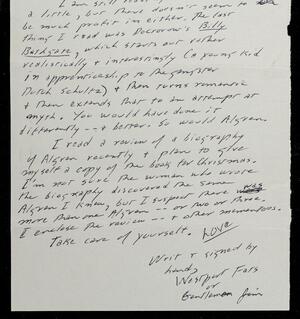 I am still
a little, but there doesn't seem to
be much profit in either. The last
thing I read was Doctorow's Billy
Bathgate, which starts out rather
realistically & interestingly (a young kid
in apprenticeship to the gangster
Dutch Schultz) & then turns romantic
& then extends that to an attempt at
myth. You would have done it
differently -- & better. So would Algren.
I read a review of a biography
of Algren recently & plan to give
myself a copy of the book for Christmas.
I'm not sure the woman who wrote
the biography discovered the same
Algren I knew, but I suspect there was
more than one Algren -- or two or three.
I enclose the review -- & other mementoes.
Take care of yourself. Love
Writ & signed by
hand,
Westport Fats
or
Gentleman Jim